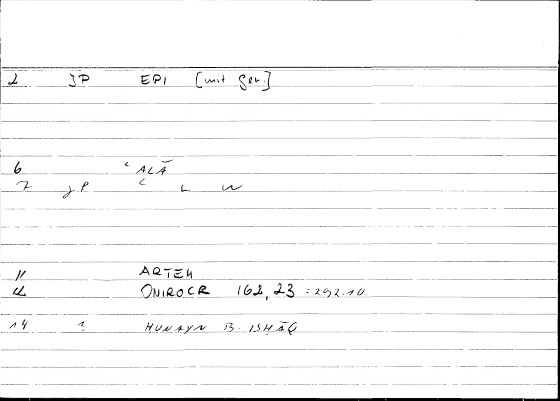 2 JP EPI [mit Gen.]
6 ʿALĀ
7 JP ʿ L W
11 ARTEM
12 ONIROCR 162,23 = 292.10
14 ? HUNAYN B. ISḤĀQ